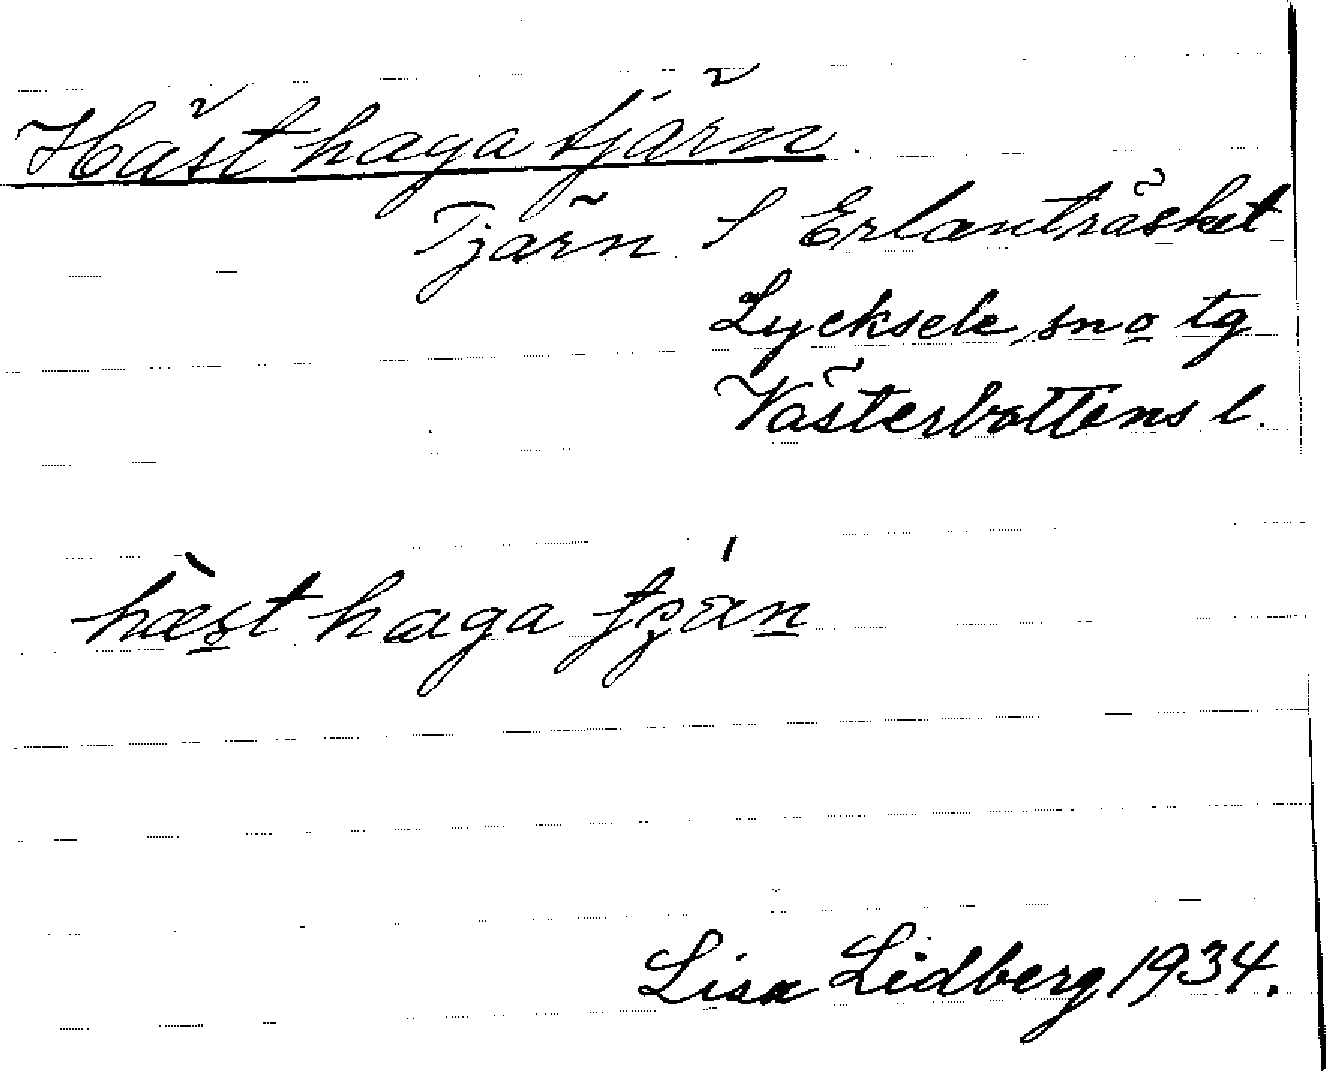 Hästhagatjärn.
Tjärn S Erlanträsket
Lycksele sn o tg
Västerbottens l.
Lisa Lidberg 1934.